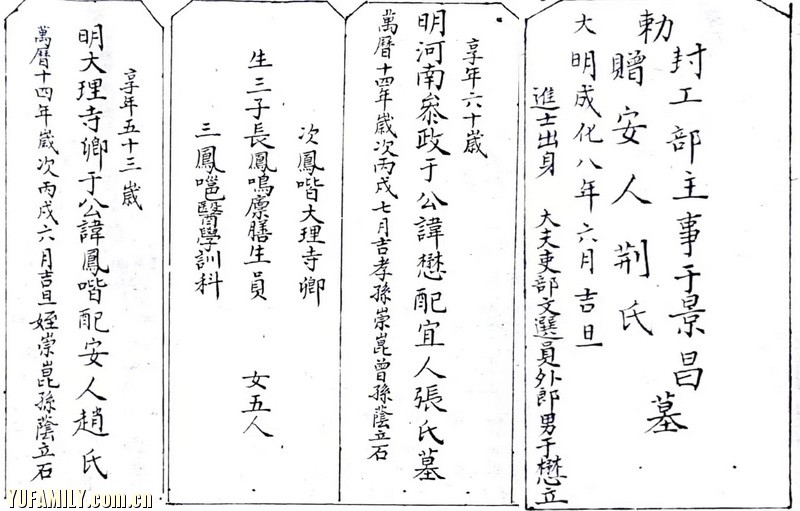 勅
封工部主事于景昌
贈安人荆氏
墓
大明成化八年六月吉旦
進士出身　大夫吏部文選員外郎男于懋立
享年六十歲
明河南叅政于公諱懋配宜人張氏墓
萬曆十四年歲次丙戌七月吉孝孫崇崑曾孫蔭立石
次鳳喈大理寺卿
生三子長鳳鳴廪膳生員　女五人
三鳳邕醫學訓科
享年五十三歲
明大理寺卿于公諱鳳喈配安人趙氏
萬曆十四年歲次丙戌六月吉旦姪崇崑孫蔭立石
YUFAMILY.com.cn